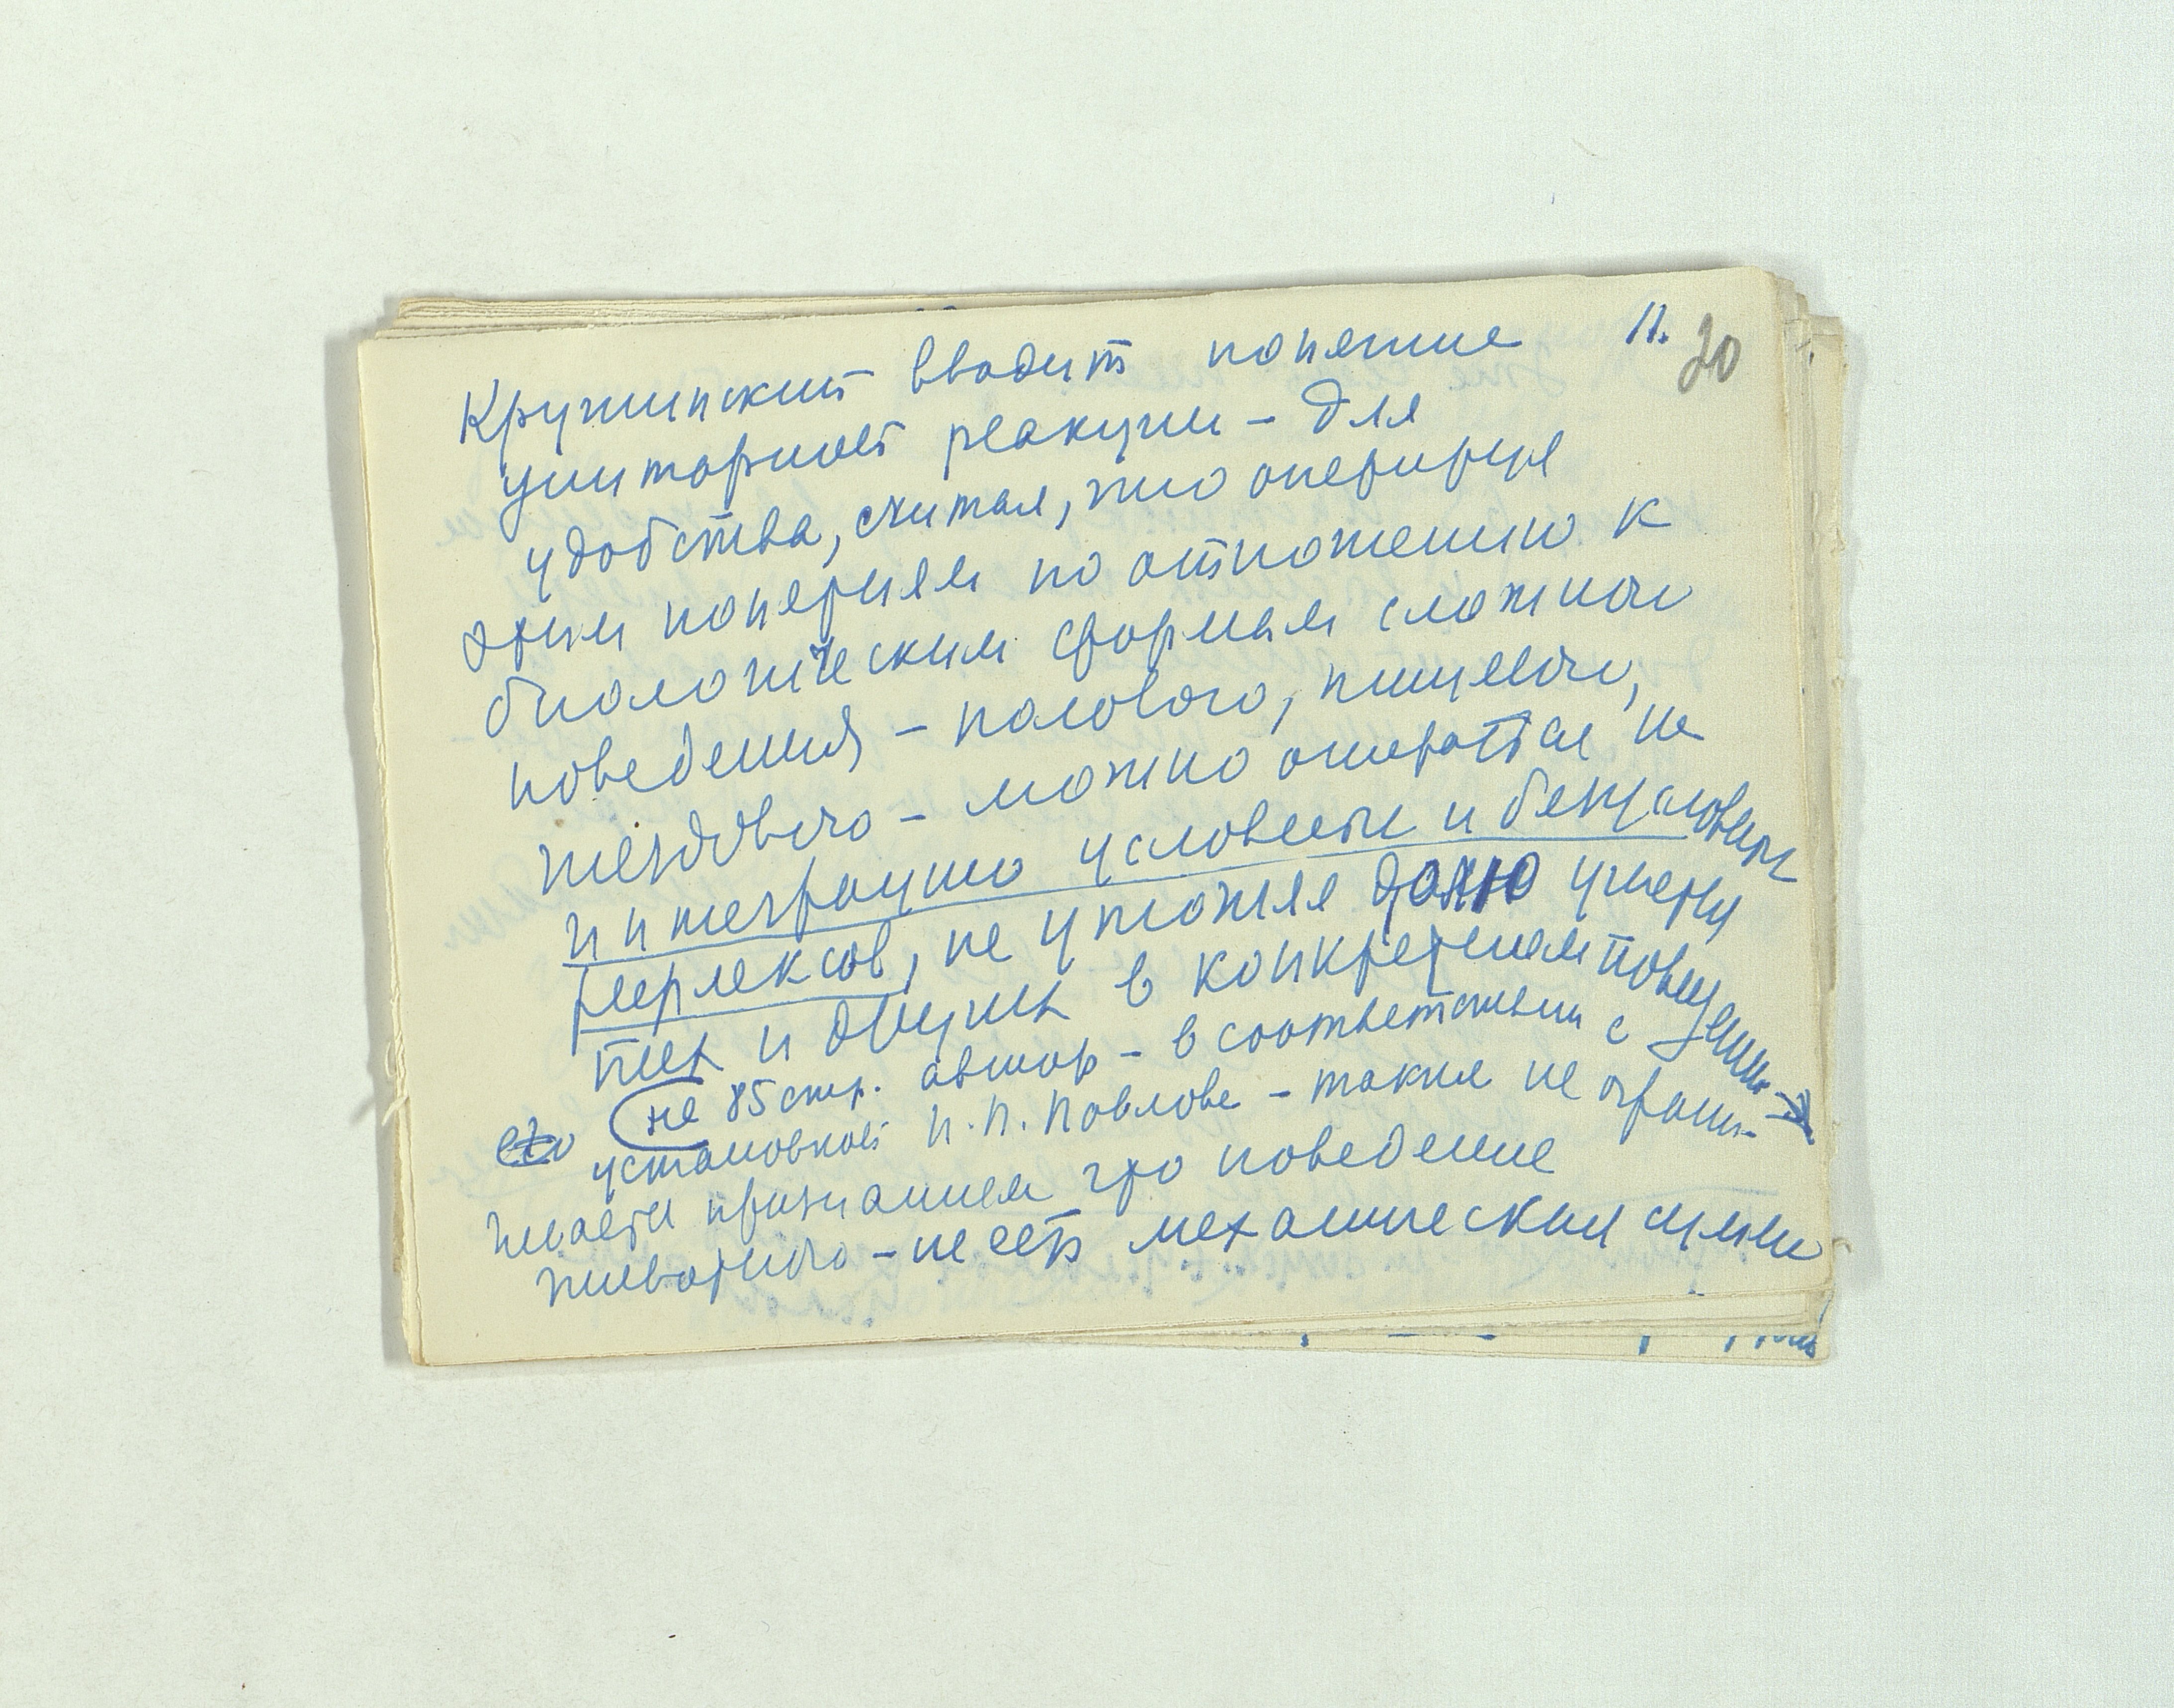 11. 20
Крушинский вводит понятие
унитарной реакции – для
удобства, считая, что оперируя
этим понятием по отношению к
биологическим формам сложного
поведения – полового, пищевого,
гнездового – можно опираться на
интеграцию условных и безусловных
рефлексов, не уточняя долю участия
тех и других в конкретном поведении →
на 85 стр. автор – в соответствии с
установкой И.П. Павлова – также не ограни-
чивается признанием что поведение
животного – не есть механическая сумма